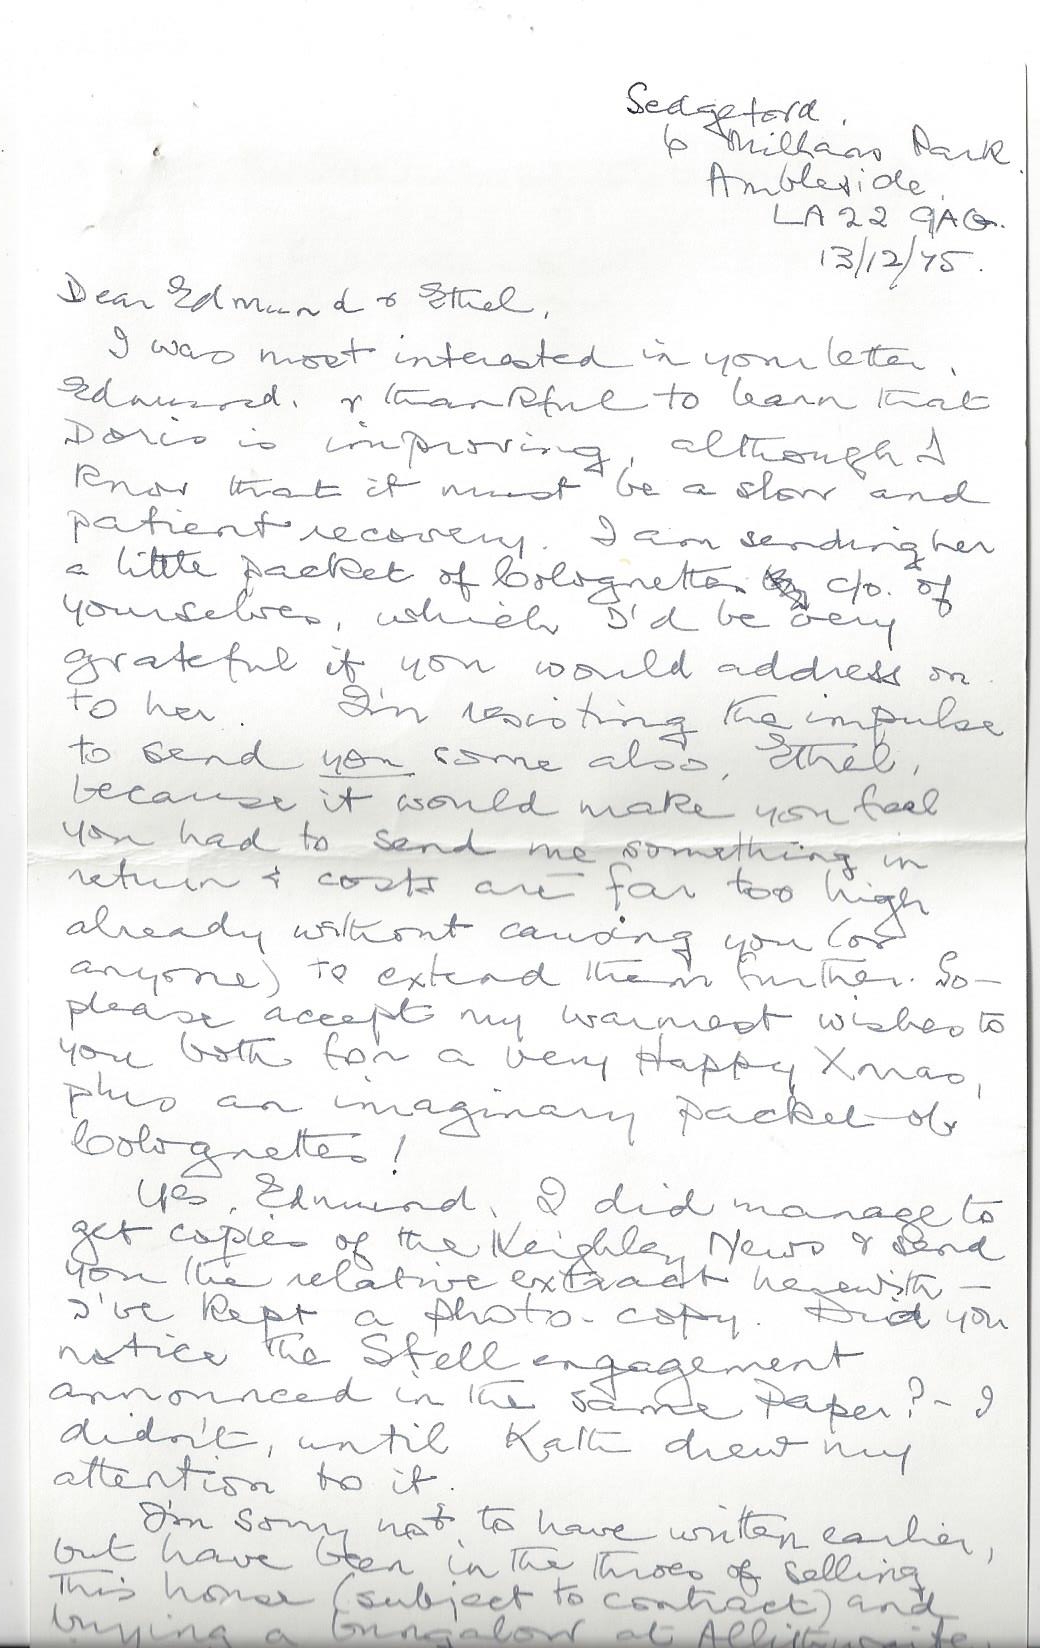 Sedgeford,
6 Millans Park.
Ambleside.
LA22 9AG.
13/12/75.
Dear Edmund & Ethel,
I was most interested in your letter,
Edmund. & thankful to learn that
Doris is improving, although I
know that it must be a slow and
patient recovery. I am sending her
a little packet of Colognettes c/o. of
yourselves, which I'd be very
grateful if you would address on
to her. I'm resisting the impulse
to send you some also, Ethel,
because it would make you feel
you had to send me something in
return & costs are far too high
already without causing you (or
anyone) to extend them further. So—
please accept my warmest wishes to
you both for a very Happy Xmas,
plus an imaginary packet of
Colognettes!
Yes, Edmund, I did manage to
get copies of the Keighley News & send
you the relative extract herewith —
I've kept a photo-copy. Did you
notice the Stell engagement
announced in the same paper? - I
didn't, until Kath drew my
attention to it.
I'm sorry not to have written earlier,
but have been in the throes of selling
this house (subject to contract) and
buying a bungalow at